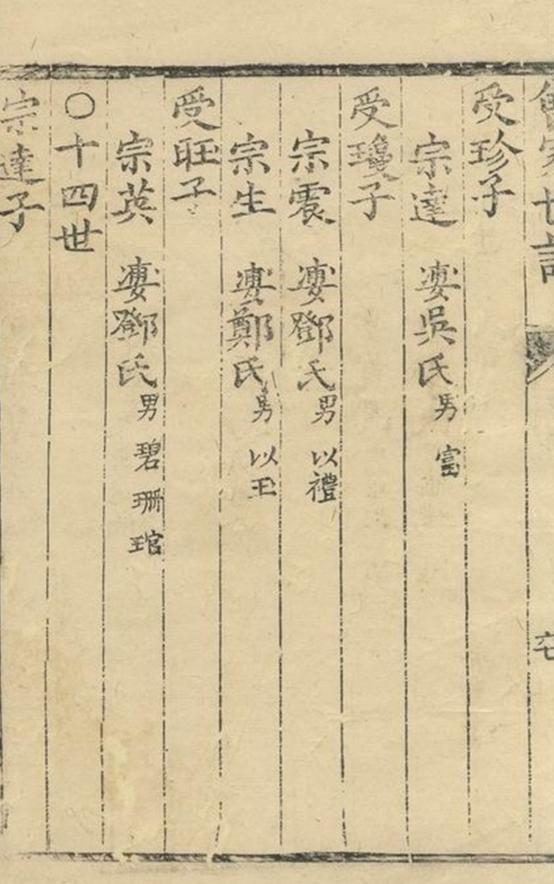 受珍子
宗達 娶吳氏 男 富
受瓊子
宗震 娶鄧氏 男 以禮
宗生 娶鄭氏 男 以王
受旺子
宗英 娶鄧氏 男 碧 珊 琯
○十四世
宗達子